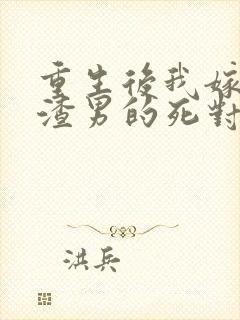 重生後我嫁
渣男的死對
洪兵